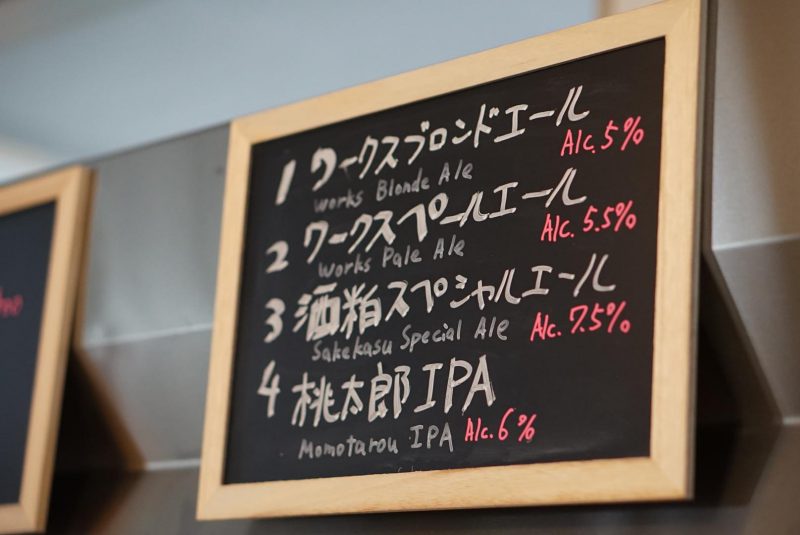 1 ワークスブロンドエール
Works Blonde Ale Alc. 5%
2 ワークスペールエール
Works Pale Ale Alc. 5.5%
3 酒粕スペシャルエール
Sakekasu Special Ale Alc. 7.5%
4 桃太郎IPA
Momotarou IPA Alc. 6%